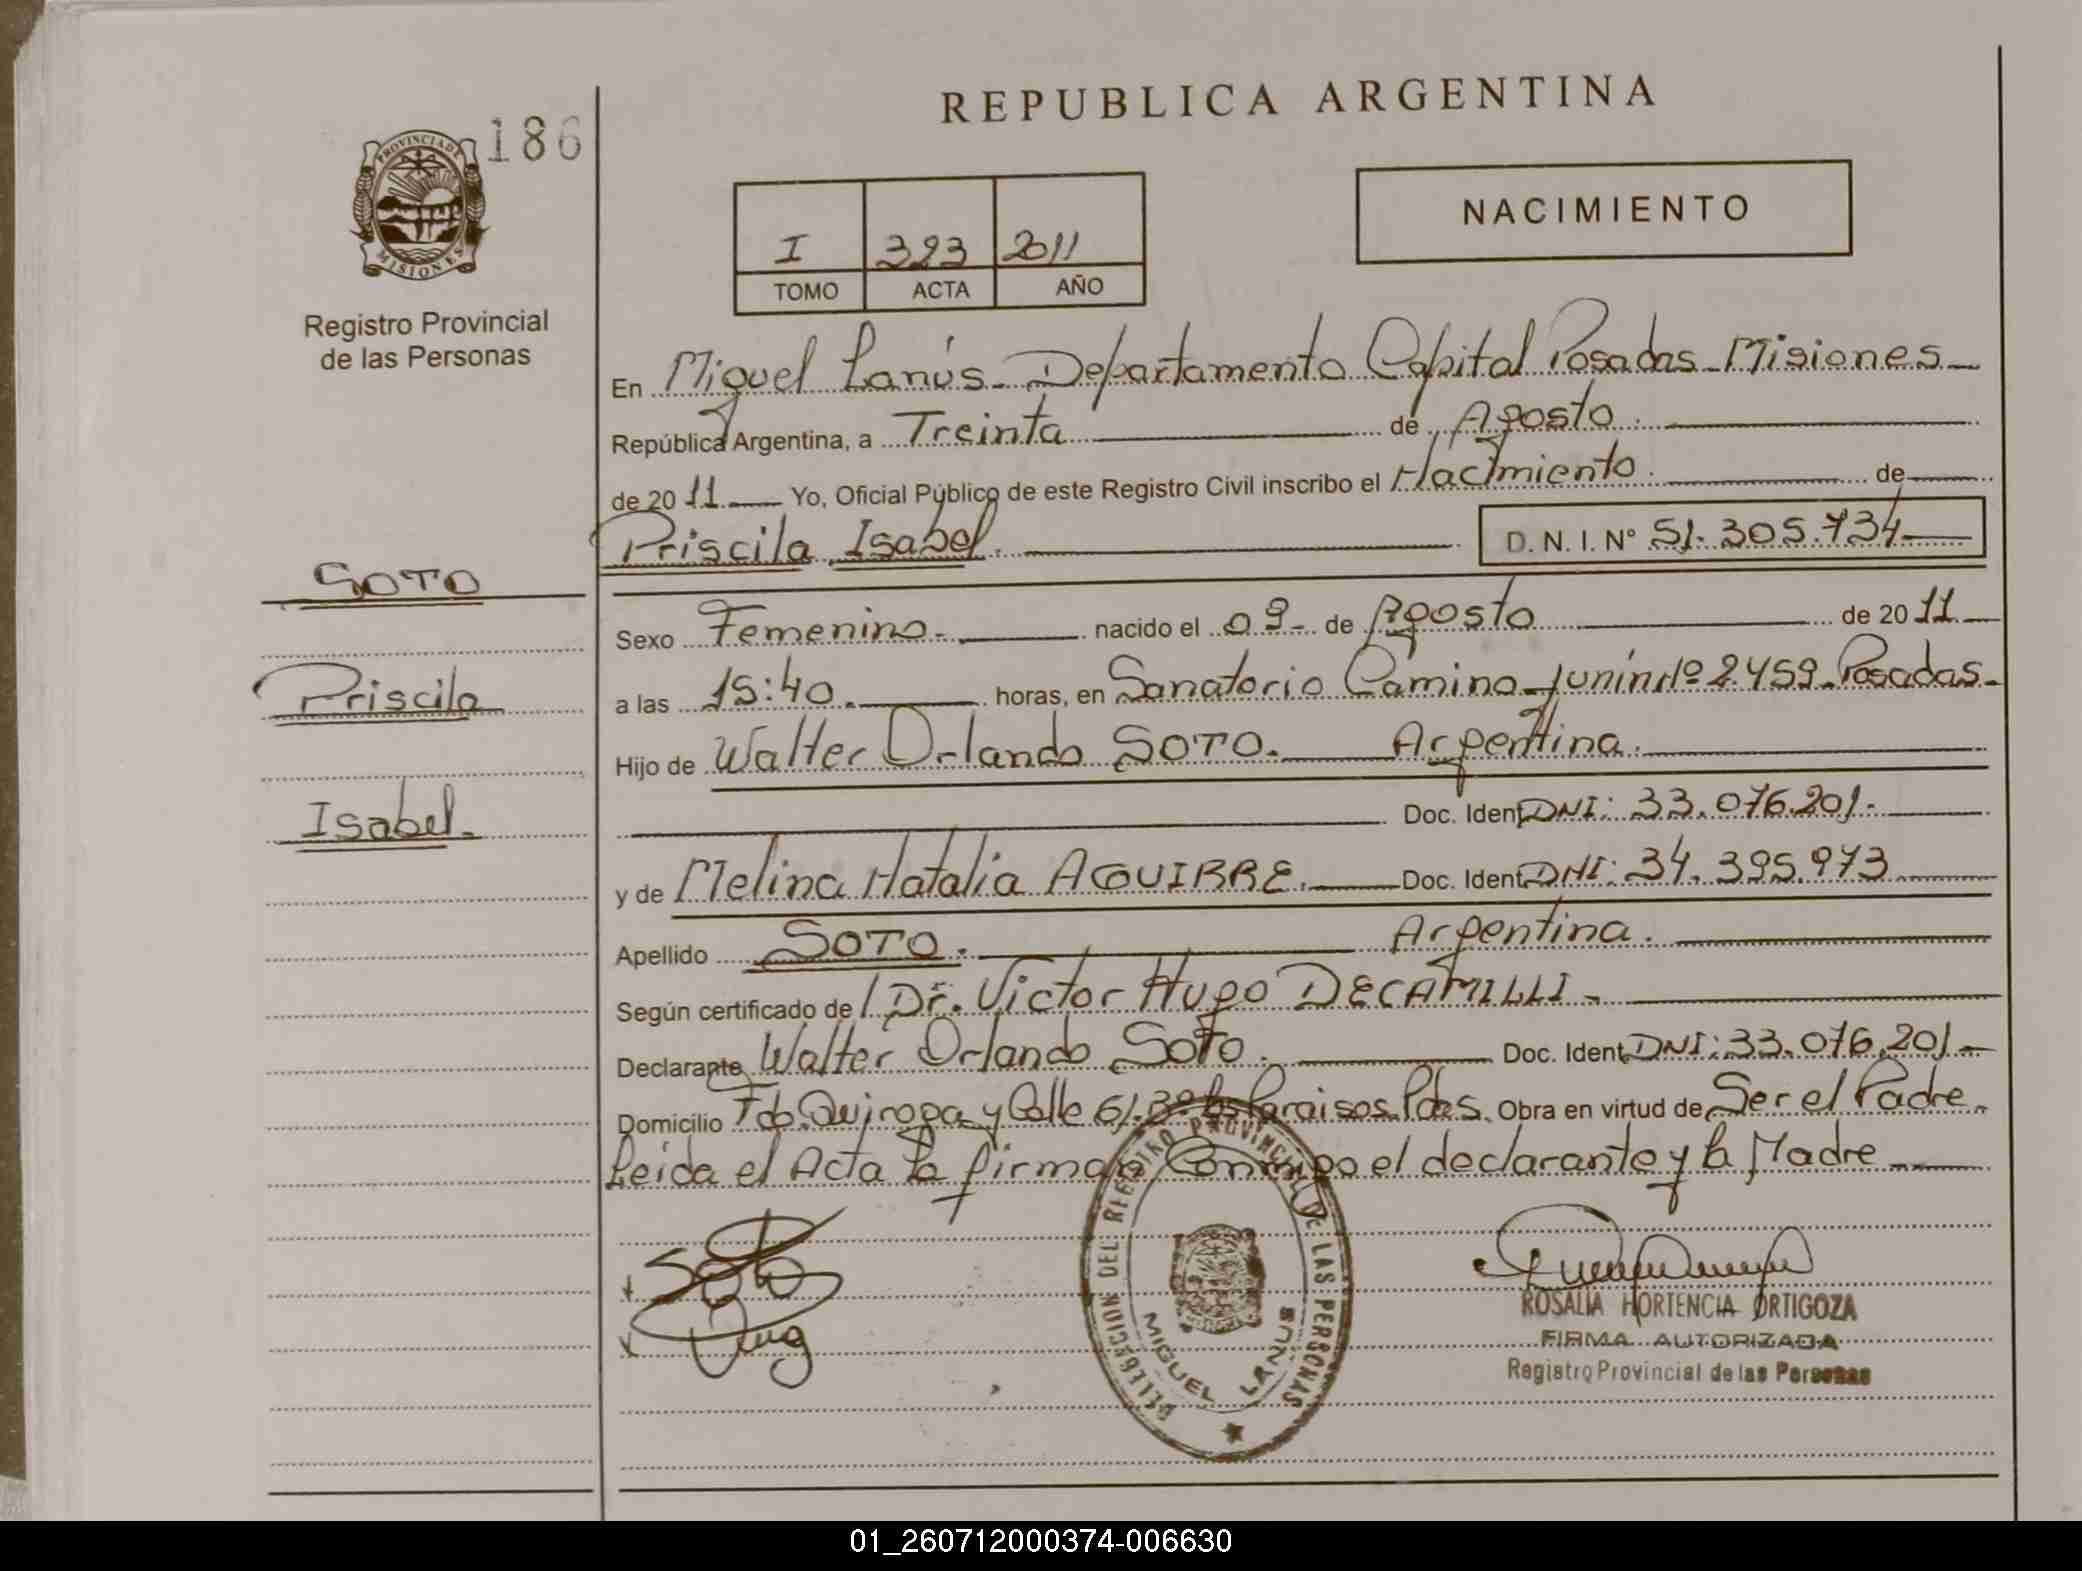 REPUBLICA ARGENTINA
186
PROVINCIA DE
MISIONES
Registro Provincial
de las Personas
I 323 2011
TOMO ACTA AÑO
NACIMIENTO
En Miguel Lanús - Departamento Capital Posadas - Misiones
República Argentina, a Treinta de Agosto
de 2011 Yo, Oficial Público de este Registro Civil inscribo el Nacimiento de
Priscila Isabel. D. N. I. Nº 51.305.734
SOTO
Priscila
Isabel.
Sexo Femenino. nacido el 09 de Agosto de 2011
a las 15:40. horas, en Sanatorio Camino - Junín Nº 2459 - Posadas -
Hijo de Walter Orlando SOTO. Argentina.
Doc. Ident DNI: 33.076.201.
y de Melina Natalia AGUIRRE. Doc. Ident DNI: 34.395.973
Apellido SOTO. Argentina.
Según certificado de Dr. Victor Hugo DECAMILLI -
Declarante Walter Orlando Soto. Doc. Ident DNI: 33.076.201 -
Domicilio Fdo. Quiroga y Calle 61. Bº Los Paraisos. Pdas. Obra en virtud de Ser el Padre.
Leida el Acta la firman Conmigo el declarante y la Madre
Soto
DELEGACION DEL REGISTRO PROVINCIAL DE LAS PERSONAS
MIGUEL LANUS
ROSALIA HORTENCIA ORTIGOZA
FIRMA AUTORIZADA
Registro Provincial de las Personas
01_260712000374-006630